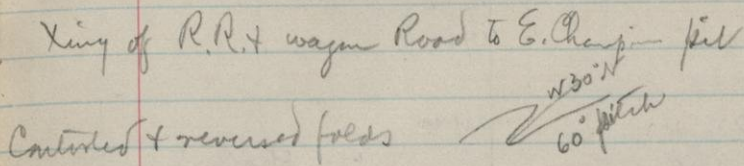 Xing of R.R. & wagon Road to E. Champion pit
W30°N
Contorted & reversed folds
60° pitch